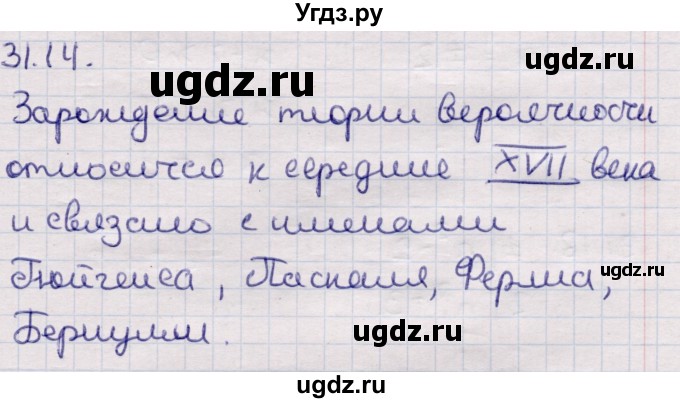 Угдз.ру
31.14.
ugdz.ru
Зарождение теории вероятности
относится к середине XVII века
и связано с именами
ugdz.ru
Гюйгенса, Паскаля, Ферма,
Бернулли.
ugdz.ru
ugdz.ru